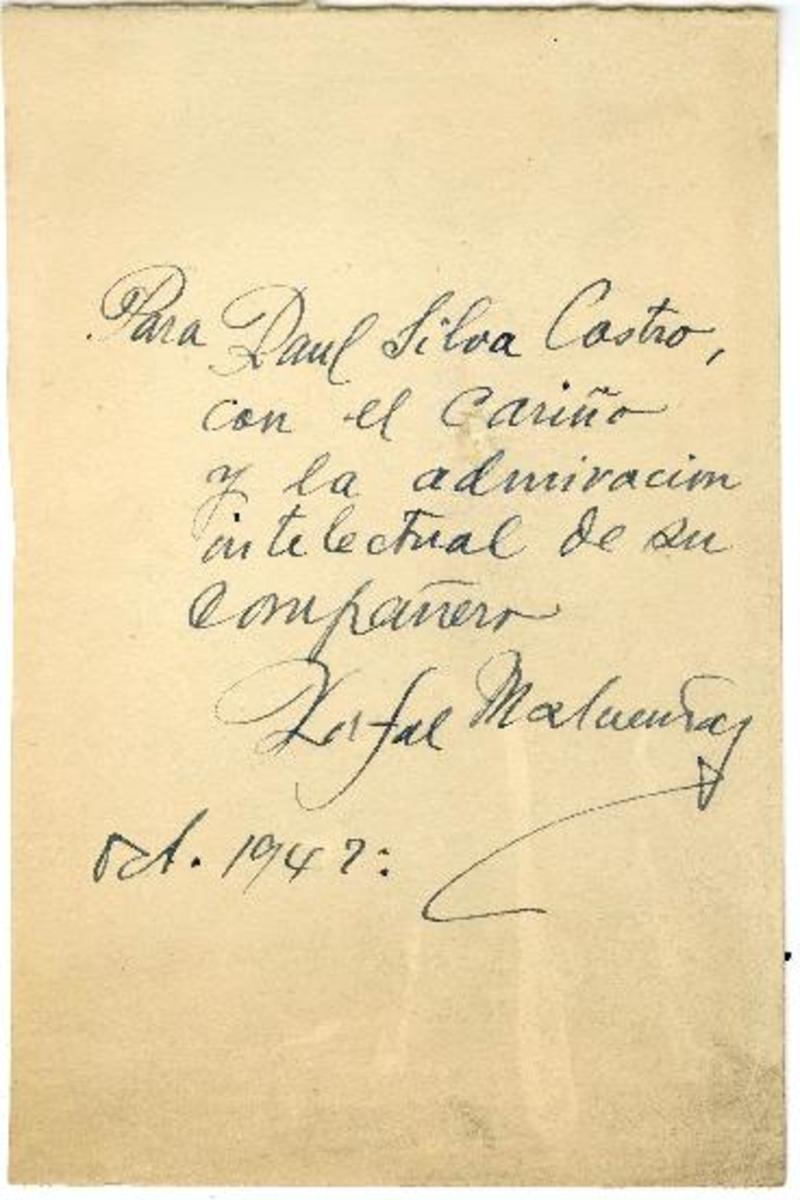 Para Raul Silva Castro,
con el cariño
y la admiracion
intelectual de su
compañero
Rafael Maluenda
Oct. 1942: